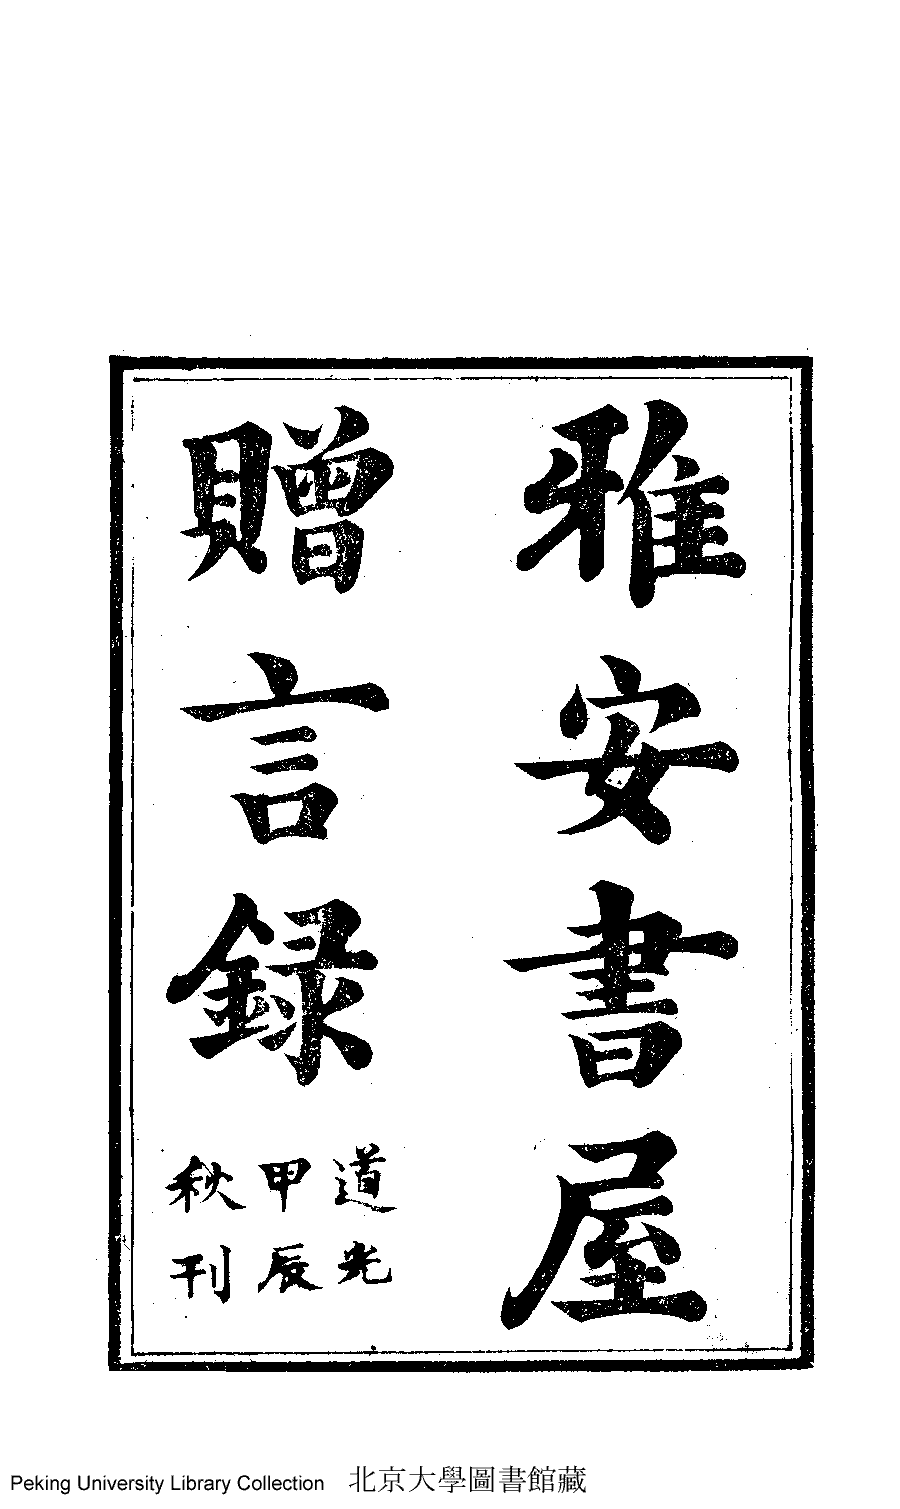 雅安書屋
贈言録
道光
甲辰
秋刊
Peking University Library Collection 北京大學圖書館藏